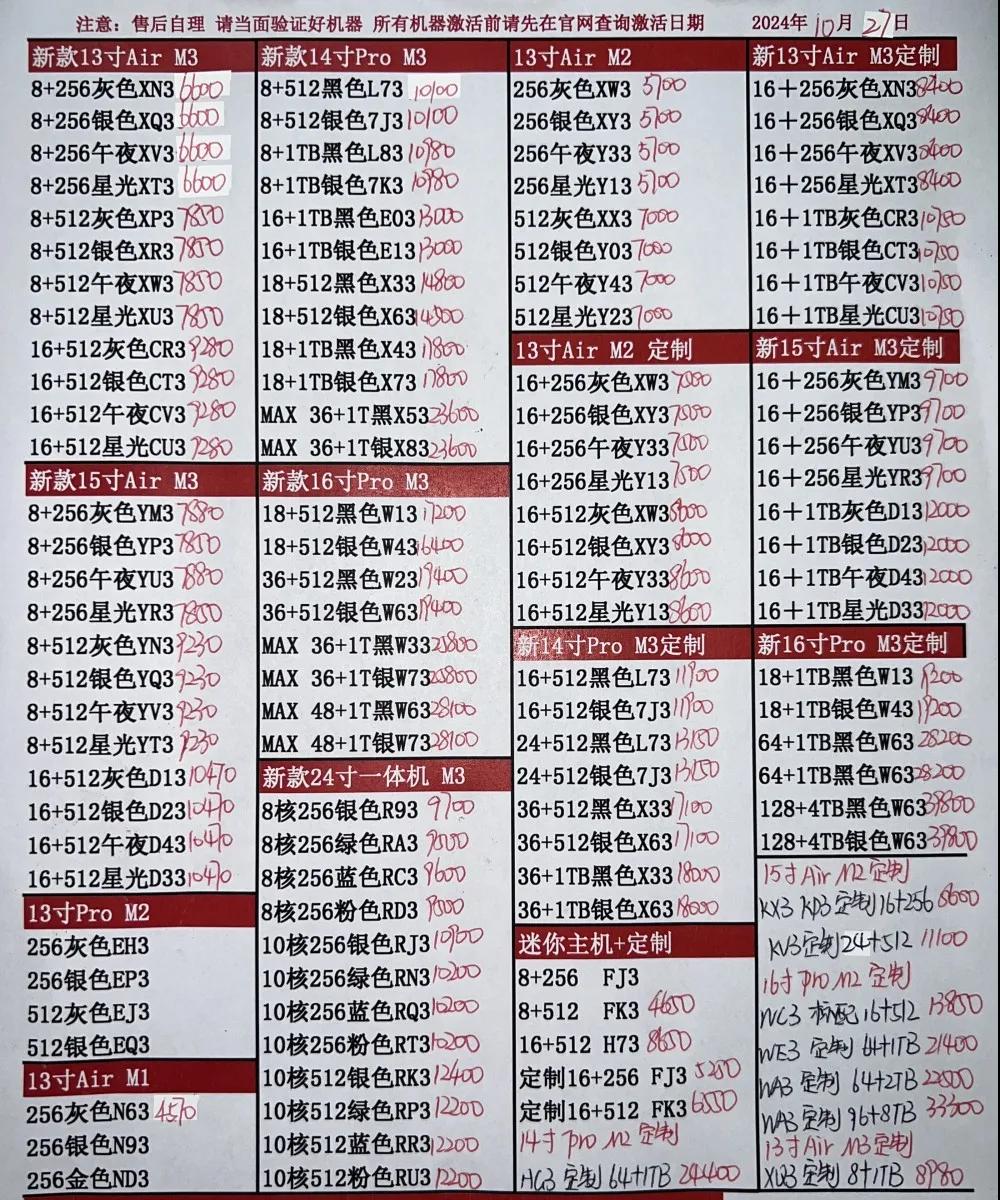 注意：售后自理 请当面验证好机器 所有机器激活前请先在官网查询激活日期 2024年10月27日
新款13寸Air M3
8+256灰色XN3 6600
8+256银色XQ3 6600
8+256午夜XV3 6600
8+256星光XT3 6600
8+512灰色XP3 7850
8+512银色XR3 7850
8+512午夜XW3 7850
8+512星光XU3 7850
16+512灰色CR3 9280
16+512银色CT3 9280
16+512午夜CV3 9280
16+512星光CU3 9280
新款15寸Air M3
8+256灰色YM3 7880
8+256银色YP3 7850
8+256午夜YU3 7880
8+256星光YR3 7850
8+512灰色YN3 9230
8+512银色YQ3 9230
8+512午夜YV3 9230
8+512星光YT3 9230
16+512灰色D13 10470
16+512银色D23 10470
16+512午夜D43 10470
16+512星光D33 10470
13寸Pro M2
256灰色EH3
256银色EP3
512灰色EJ3
512银色EQ3
13寸Air M1
256灰色N63 4570
256银色N93
256金色ND3
新款14寸Pro M3
8+512黑色L73 10100
8+512银色7J3 10100
8+1TB黑色L83 10980
8+1TB银色7K3 10980
16+1TB黑色E03 13000
16+1TB银色E13 13000
18+512黑色X33 14800
18+512银色X63 14500
18+1TB黑色X43 17800
18+1TB银色X73 17800
MAX 36+1T黑X53 23600
MAX 36+1T银X83 23600
新款16寸Pro M3
18+512黑色W13 17200
18+512银色W43 16400
36+512黑色W23 19400
36+512银色W63 19400
MAX 36+1T黑W33 21800
MAX 36+1T银W73 20800
MAX 48+1T黑W63 28100
MAX 48+1T银W73 28100
新款24寸一体机 M3
8核256银色R93 9700
8核256绿色RA3 9500
8核256蓝色RC3 9600
8核256粉色RD3 9500
10核256银色RJ3 10900
10核256绿色RN3 10200
10核256蓝色RQ3 10200
10核256粉色RT3 10200
10核512银色RK3 12400
10核512绿色RP3 12200
10核512蓝色RR3 12200
10核512粉色RU3 12200
13寸Air M2
256灰色XW3 5700
256银色XY3 5700
256午夜Y33 5700
256星光Y13 5700
512灰色XX3 7000
512银色Y03 7000
512午夜Y43 7000
512星光Y23 7000
13寸Air M2 定制
16+256灰色XW3 7000
16+256银色XY3 7500
16+256午夜Y33 7000
16+256星光Y13 7500
16+512灰色XW3 8600
16+512银色XY3 8600
16+512午夜Y33 8600
16+512星光Y13 8600
新14寸Pro M3定制
16+512黑色L73 11900
16+512银色7J3 11900
24+512黑色L73 13150
24+512银色7J3 13150
36+512黑色X33 17100
36+512银色X63 17100
36+1TB黑色X33 18000
36+1TB银色X63 18000
迷你主机+定制
8+256 FJ3
8+512 FK3 4650
16+512 H73 8650
定制16+256 FJ3 5250
定制16+512 FK3 6550
14寸 pro M2 定制
HG3 定制 64+1TB 24400
新13寸Air M3定制
16＋256灰色XN3 8400
16＋256银色XQ3 8400
16＋256午夜XV3 8400
16＋256星光XT3 8400
16＋1TB灰色CR3 10750
16＋1TB银色CT3 10750
16＋1TB午夜CV3 10750
16＋1TB星光CU3 10750
新15寸Air M3定制
16＋256灰色YM3 9700
16＋256银色YP3 9700
16＋256午夜YU3 9700
16＋256星光YR3 9700
16＋1TB灰色D13 12000
16＋1TB银色D23 12000
16＋1TB午夜D43 12000
16＋1TB星光D33 12000
新16寸Pro M3定制
18+1TB黑色W13 19200
18+1TB银色W43 19200
64+1TB黑色W63 28200
64+1TB黑色W63 28200
128+4TB黑色W63 39800
128+4TB银色W63 39800
15寸Air M2定制
KX3 KP3 定制16+256 8600
KV3定制24+512 11100
16寸 pro M2 定制
NC3 标配 16+512 13850
WE3 定制 64+1TB 21400
WA3 定制 64+2TB 22500
WA3 定制 96+8TB 33300
13寸Air M3定制
XU3 定制 8+1TB 8980